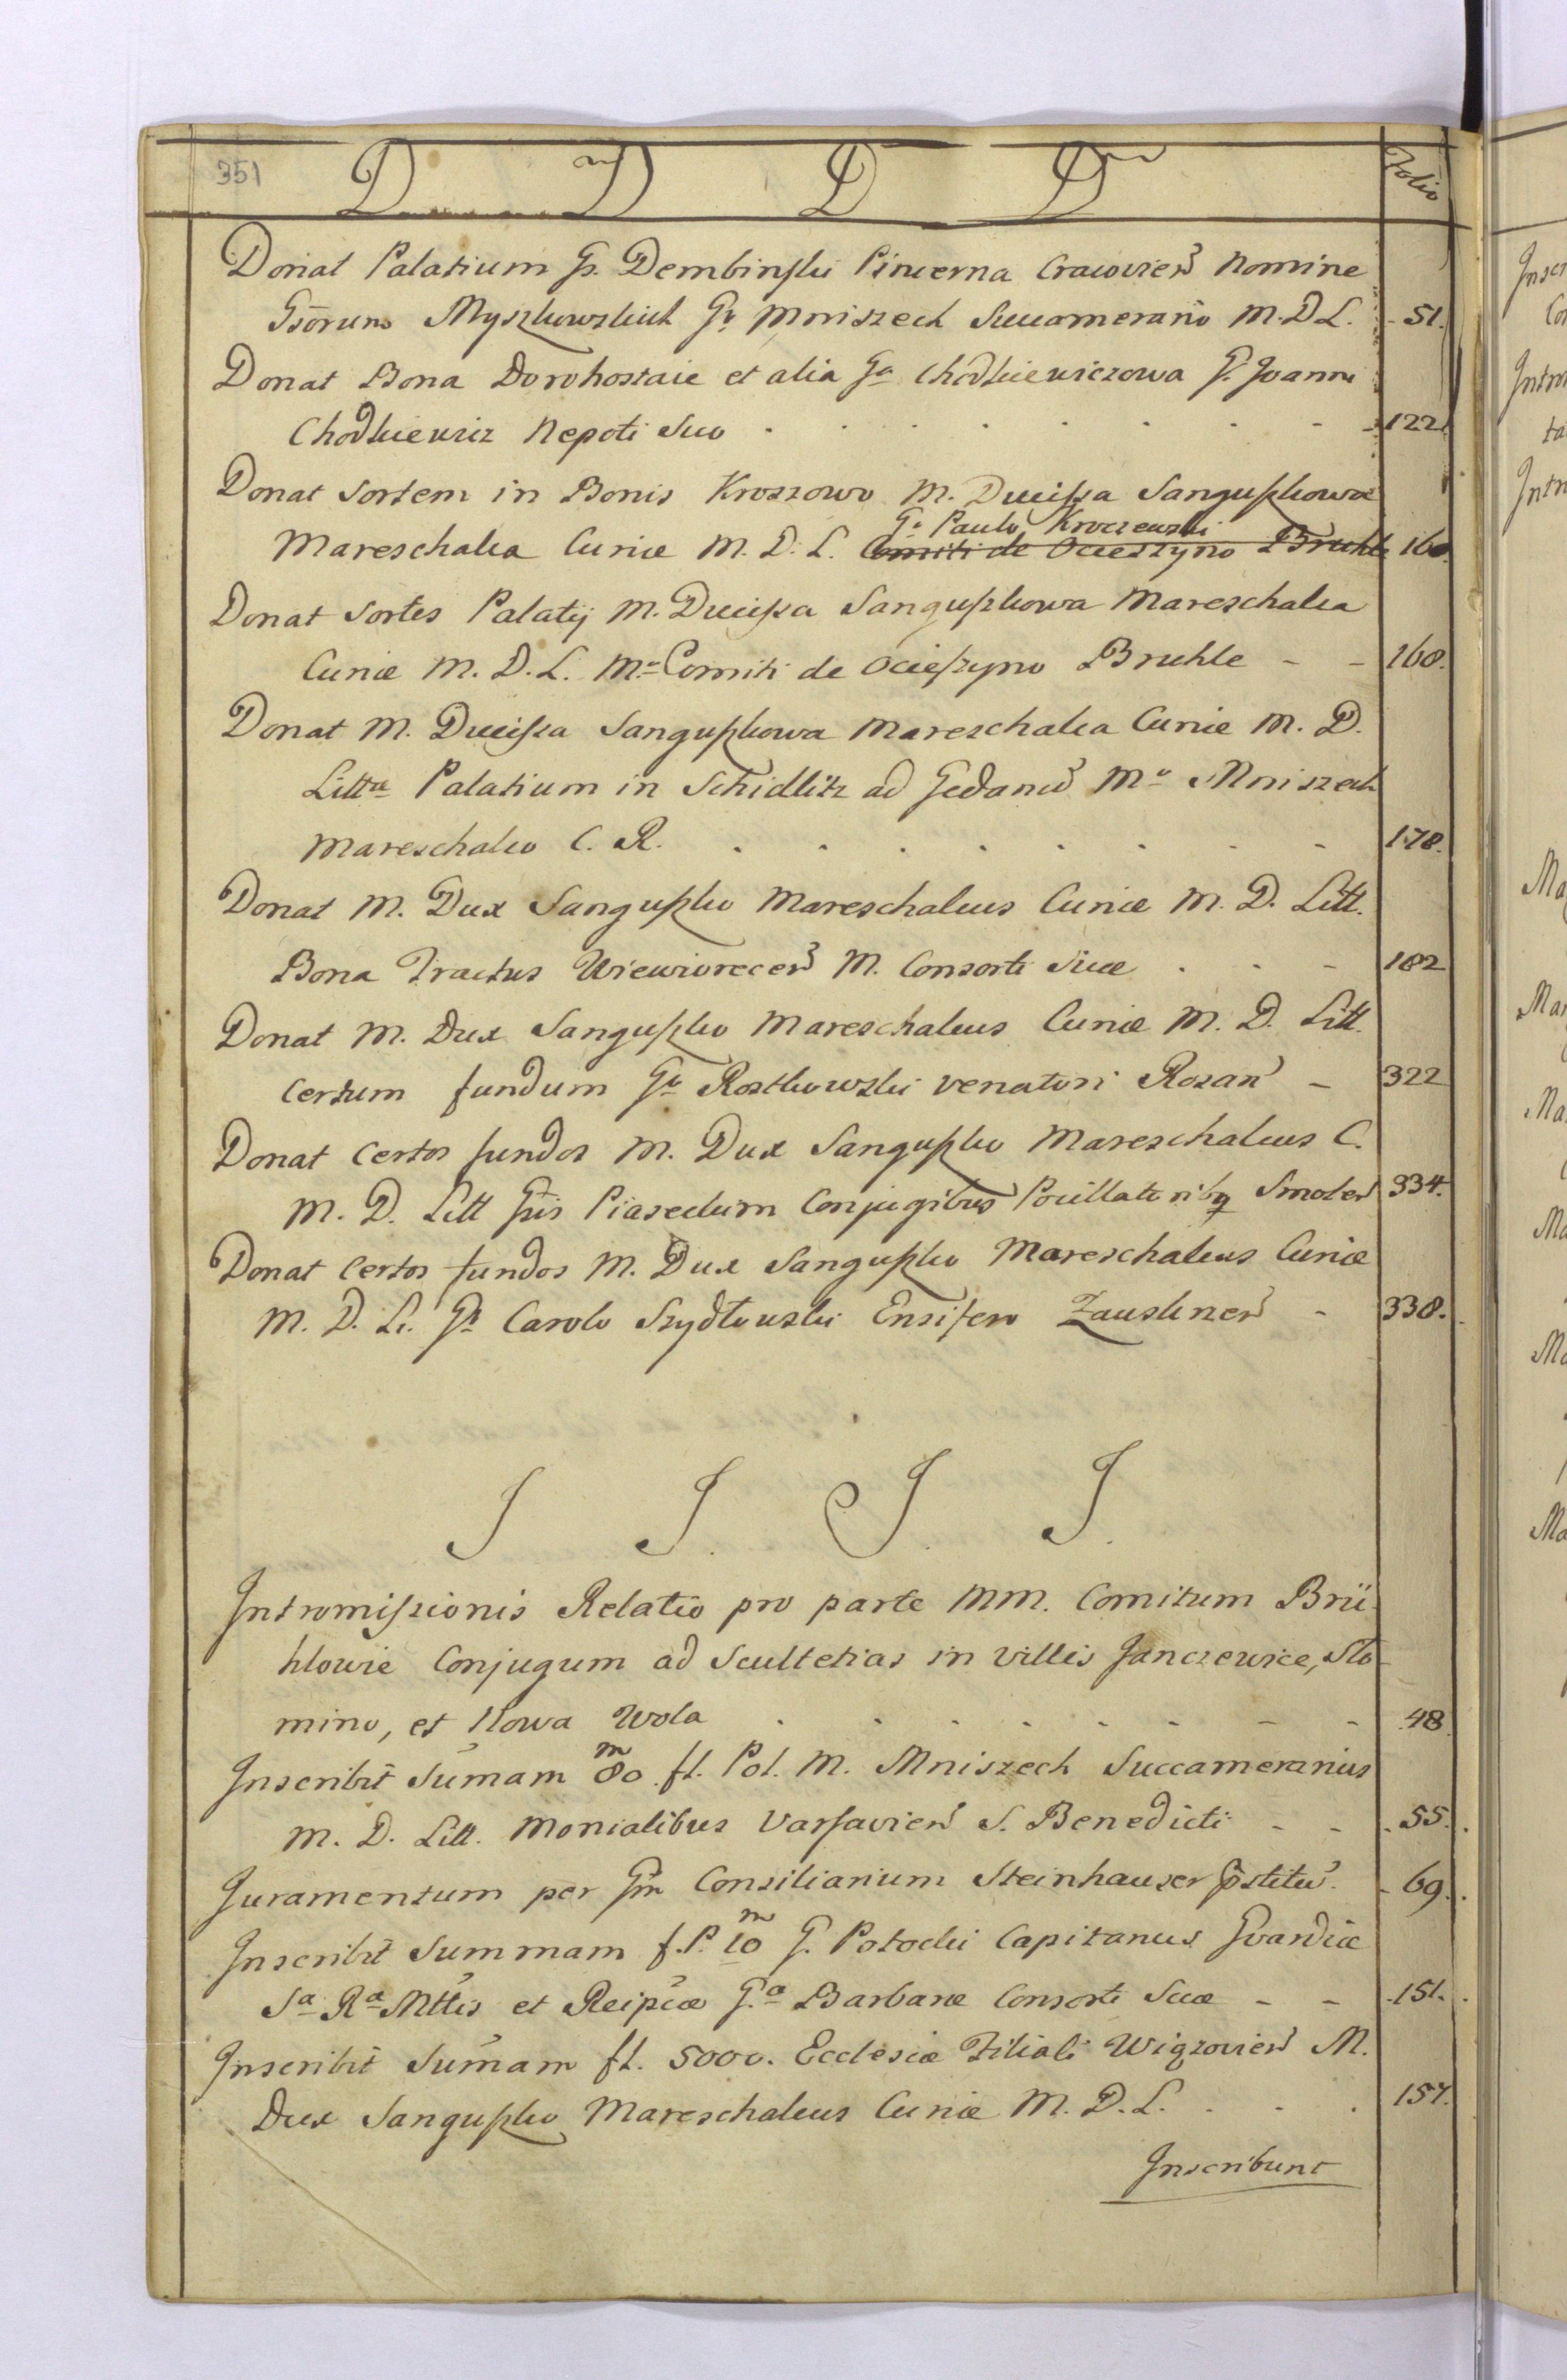 351 D D D D Folio
Donat Palatium G. Dembinski Pincerna Cracovien Nomine
Gsorum Myszkowskich Go Mniszech Succamerario M. D L. 51.
Donat Bona Dorohostaie et alia Ga Chodkiewiczowa G. Joanni
Chodkiewicz Nepoti Suo 122.
Donat Sortem in Bonis Kroszowo M. Ducissa Sanguszkowa
Go Paulo Kroczewski
Mareschalca Curiæ M. D. L. Comiti de Ocieszyno Bruhle 160.
Donat Sortes Palatij M. Ducissa Sanguszkowa Mareschalca
Curiæ M. D. L. Mo Comiti de Ocieszyno Bruhle 168.
Donat M. Ducissa Sanguszkowa Mareschalca Curiæ M. D.
Litta Palatium in Schidlitz ad Gedanū Mo Mniszech
Mareschalco C. R. 178.
Donat M. Dux Sanguszko Mareschalcus Curiæ M. D. Litt.
Bona Tractus Wiewiorecen M. Consorti Suæ 182
Donat M. Dux Sanguszko Mareschalcus Curiæ M. D. Litt.
Certum fundum Go Rostkowski Venatori Rozan 322
Donat Certos fundos M. Dux Sanguszko Mareschalcus C.
M. D. Litt Piaseckim Conjugibus Pocillatoribq Smolen 334.
Donat Certos fundos M. Dux Sanguszko Mareschalcus Curiæ
M. D. L. Go Carolo Szydłowski Ensifero Zauskrzen 338.
J J. J. J.
Intromissionis Relatio pro parte MM. Comitum Brü-
hlowie Conjugum ad Scultetias in Villis Janczewice, Sto
mino, et Nowa Wola 48
Inscribit Sumam 80 m fl. Pol. M. Mniszech Succamerarius
M. D. Litt. Monialibus Varsavien S. Benedicti 55.
Juramentum per Gm Consiliarium Steinhauser 69.
Inscribit Summam f. P. 10 m G. Potocki Capitanus Gvardiæ
Sa Ra Mttis et Reipcæ G.a Barbaræ Consorti Suæ 151.
Inscribit Sumam fl. 5000. Ecclesiæ Filiali Wiązovien M.
Dux Sanguszko Mareschalcus Curiæ M. D. L. 157.
Inscribunt